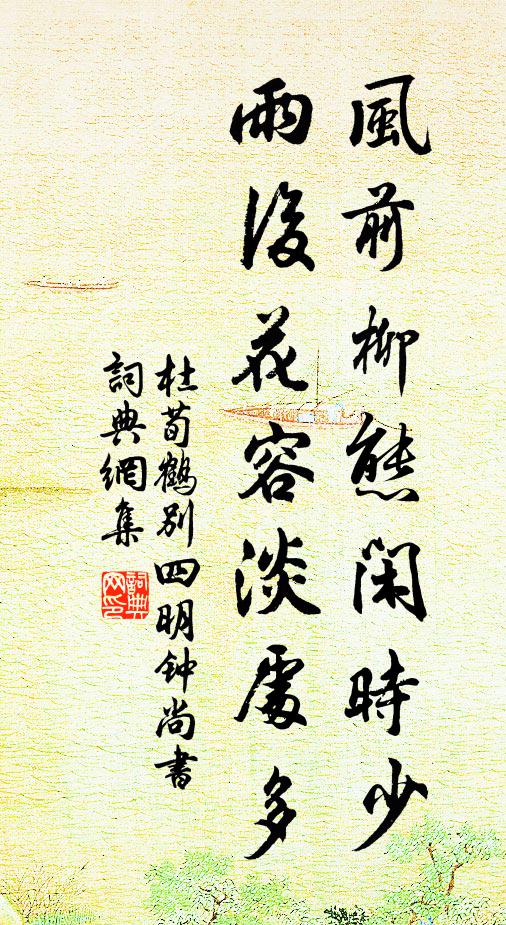 風前柳態閑時少
雨後花容淡處多
杜荀鶴別四明钟尚書
詞典網集
詞典网印